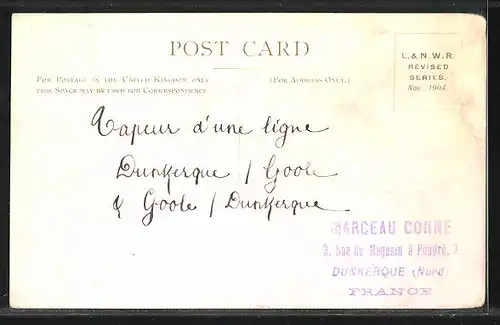 POST CARD
FOR POSTAGE IN THE UNITED KINGDOM ONLY
THIS SPACE MAY BE USED FOR CORRESPONDENCE
(FOR ADDRESS ONLY.)
L. & N. W. R.
REVISED
SERIES.
Nov. 1904.
Vapeur d'une ligne
Dunkerque / Goole
& Goole / Dunkerque
MARCEAU CONNE
3, Rue du Magasin à Poudre, 3
DUNKERQUE (Nord)
FRANCE